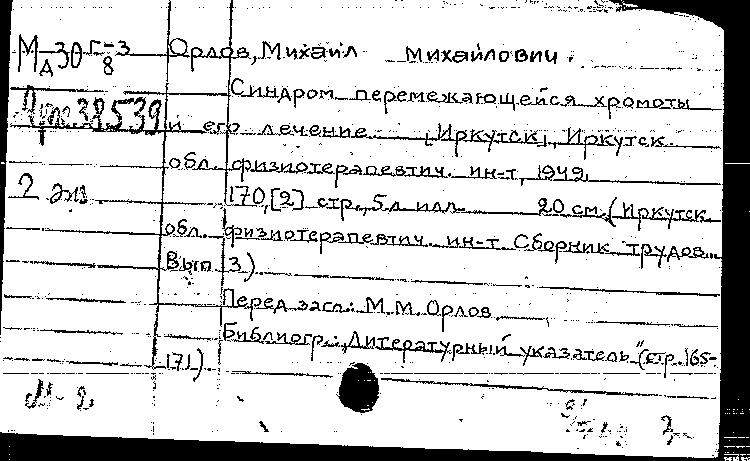 Мд30 Г-3/8 Орлов, Михаил Михайлович.
Синдром перемежающейся хромоты
Арх. 38539 и его лечение. [Иркутск], Иркутск.
обл. физиотерапевтич. ин-т, 1949.
2 экз. 170,[2] стр., 5 л илл. 20 см. (Иркутск.
обл. физиотерапевтич. ин-т. Сборник трудов.
Вып. 3)
Перед загл.: М.М. Орлов
Библиогр.: „Литературный указатель" (стр. 165-
171).
М-2